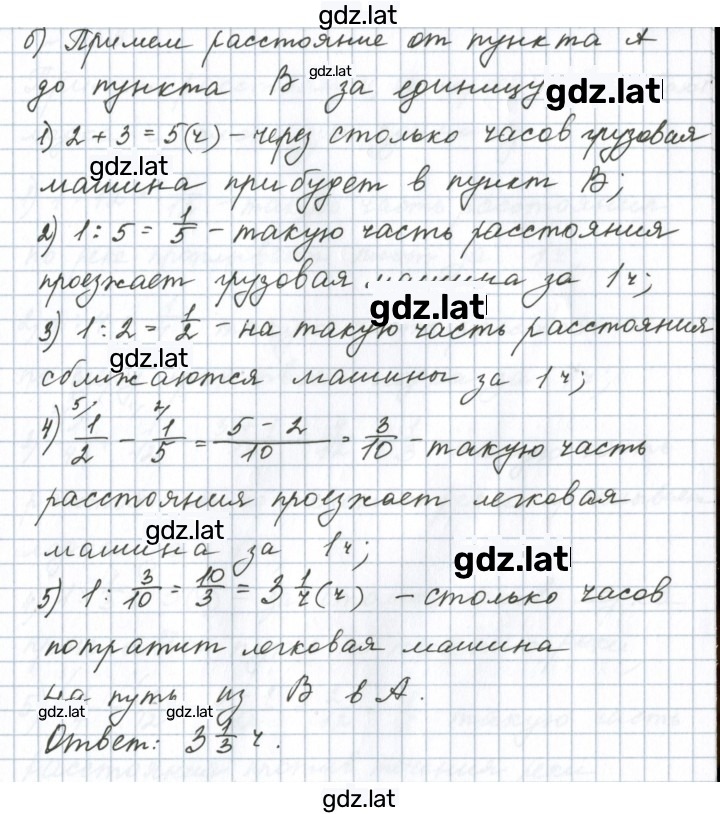 gdz.lat
б) Примем расстояние от пункта А
gdz.lat
до пункта В за единицу
gdz.lat
1) 2 + 3 = 5 (ч) – через столько часов грузовая
gdz.lat
машина прибудет в пункт В;
2) 1 : 5 = 1/5 – такую часть расстояния
проезжает грузовая машина за 1 ч;
gdz.lat
3) 1 : 2 = 1/2 – на такую часть расстояния
gdz.lat
сближаются машины за 1 ч;
4) 5/ 1/2 – 2/ 1/5 = 5 – 2/10 = 3/10 – такую часть
расстояния проезжает легковая
gdz.lat
машина за 1 ч;
gdz.lat
5) 1 : 3/10 = 10/3 = 3 1/4 (ч) – столько часов
потратит легковая машина
на путь из В в А.
gdz.lat gdz.lat
Ответ: 3 1/3 ч.
gdz.lat